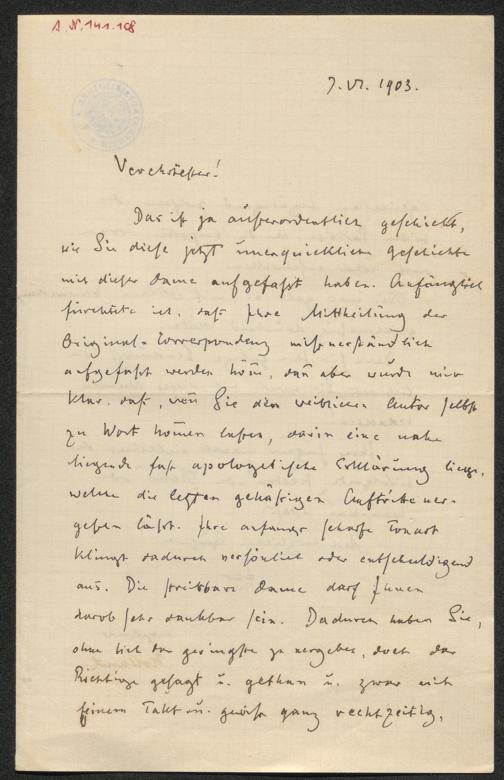 A.N. 141.168
7. VI. 1903.
Verehrtester!
Das ist ja außerordentlich geschickt,
wie Sie diese jetzt unerquickliche Geschichte
mit dieser Dame aufgefaßt haben. Anfänglich
fürchtete ich, daß Ihre Mittheilung der
Original-Correspondenz mißverständlich
aufgefaßt werden könn, dan aber wurde mir
klar, daß, wen Sie den weiblichen Autor selbst
zu Wort komen lassen, darin eine nahe
liegende fast apologetische Erklärung liege,
welche die letzten gehäßigen Auftritte ver-
geßen läßt. Ihre anfangs scharfe Tonart
klingt dadurch versönlich oder entschuldigend
aus. Die streitbare Dame darf Ihnen
darob sehr dankbar sein. Dadurch haben Sie,
ohne sich das geringste zu vergeben, doch das
Richtige gesagt u. gethan u. zwar mit
feinem Takt u. gewiß ganz rechtzeitig.